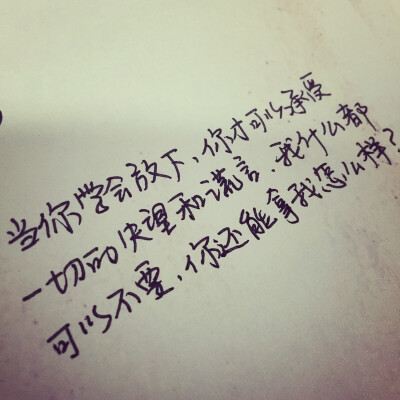 当你学会放下、你才可以承受
一切的失望和谎言.我什么都
可以不要、你还能拿我怎么样？